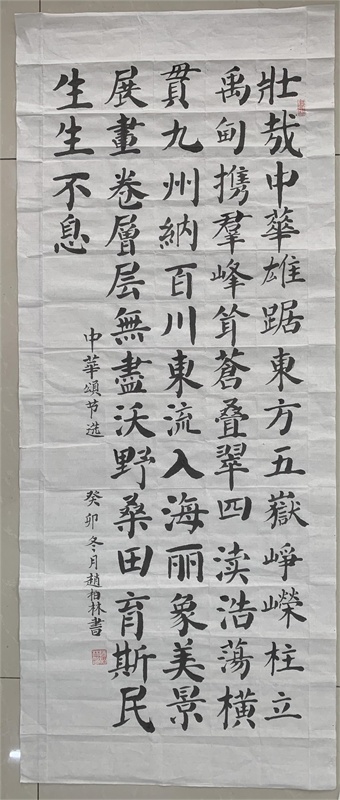 壯哉中華雄踞東方五嶽崢嶸柱立
禹甸攜羣峰耸蒼叠翠四渎浩蕩橫
貫九州納百川東流入海丽象美景
展畫卷層层無盡沃野桑田育斯民
生生不息
中華頌节选
癸卯冬月趙柏林書